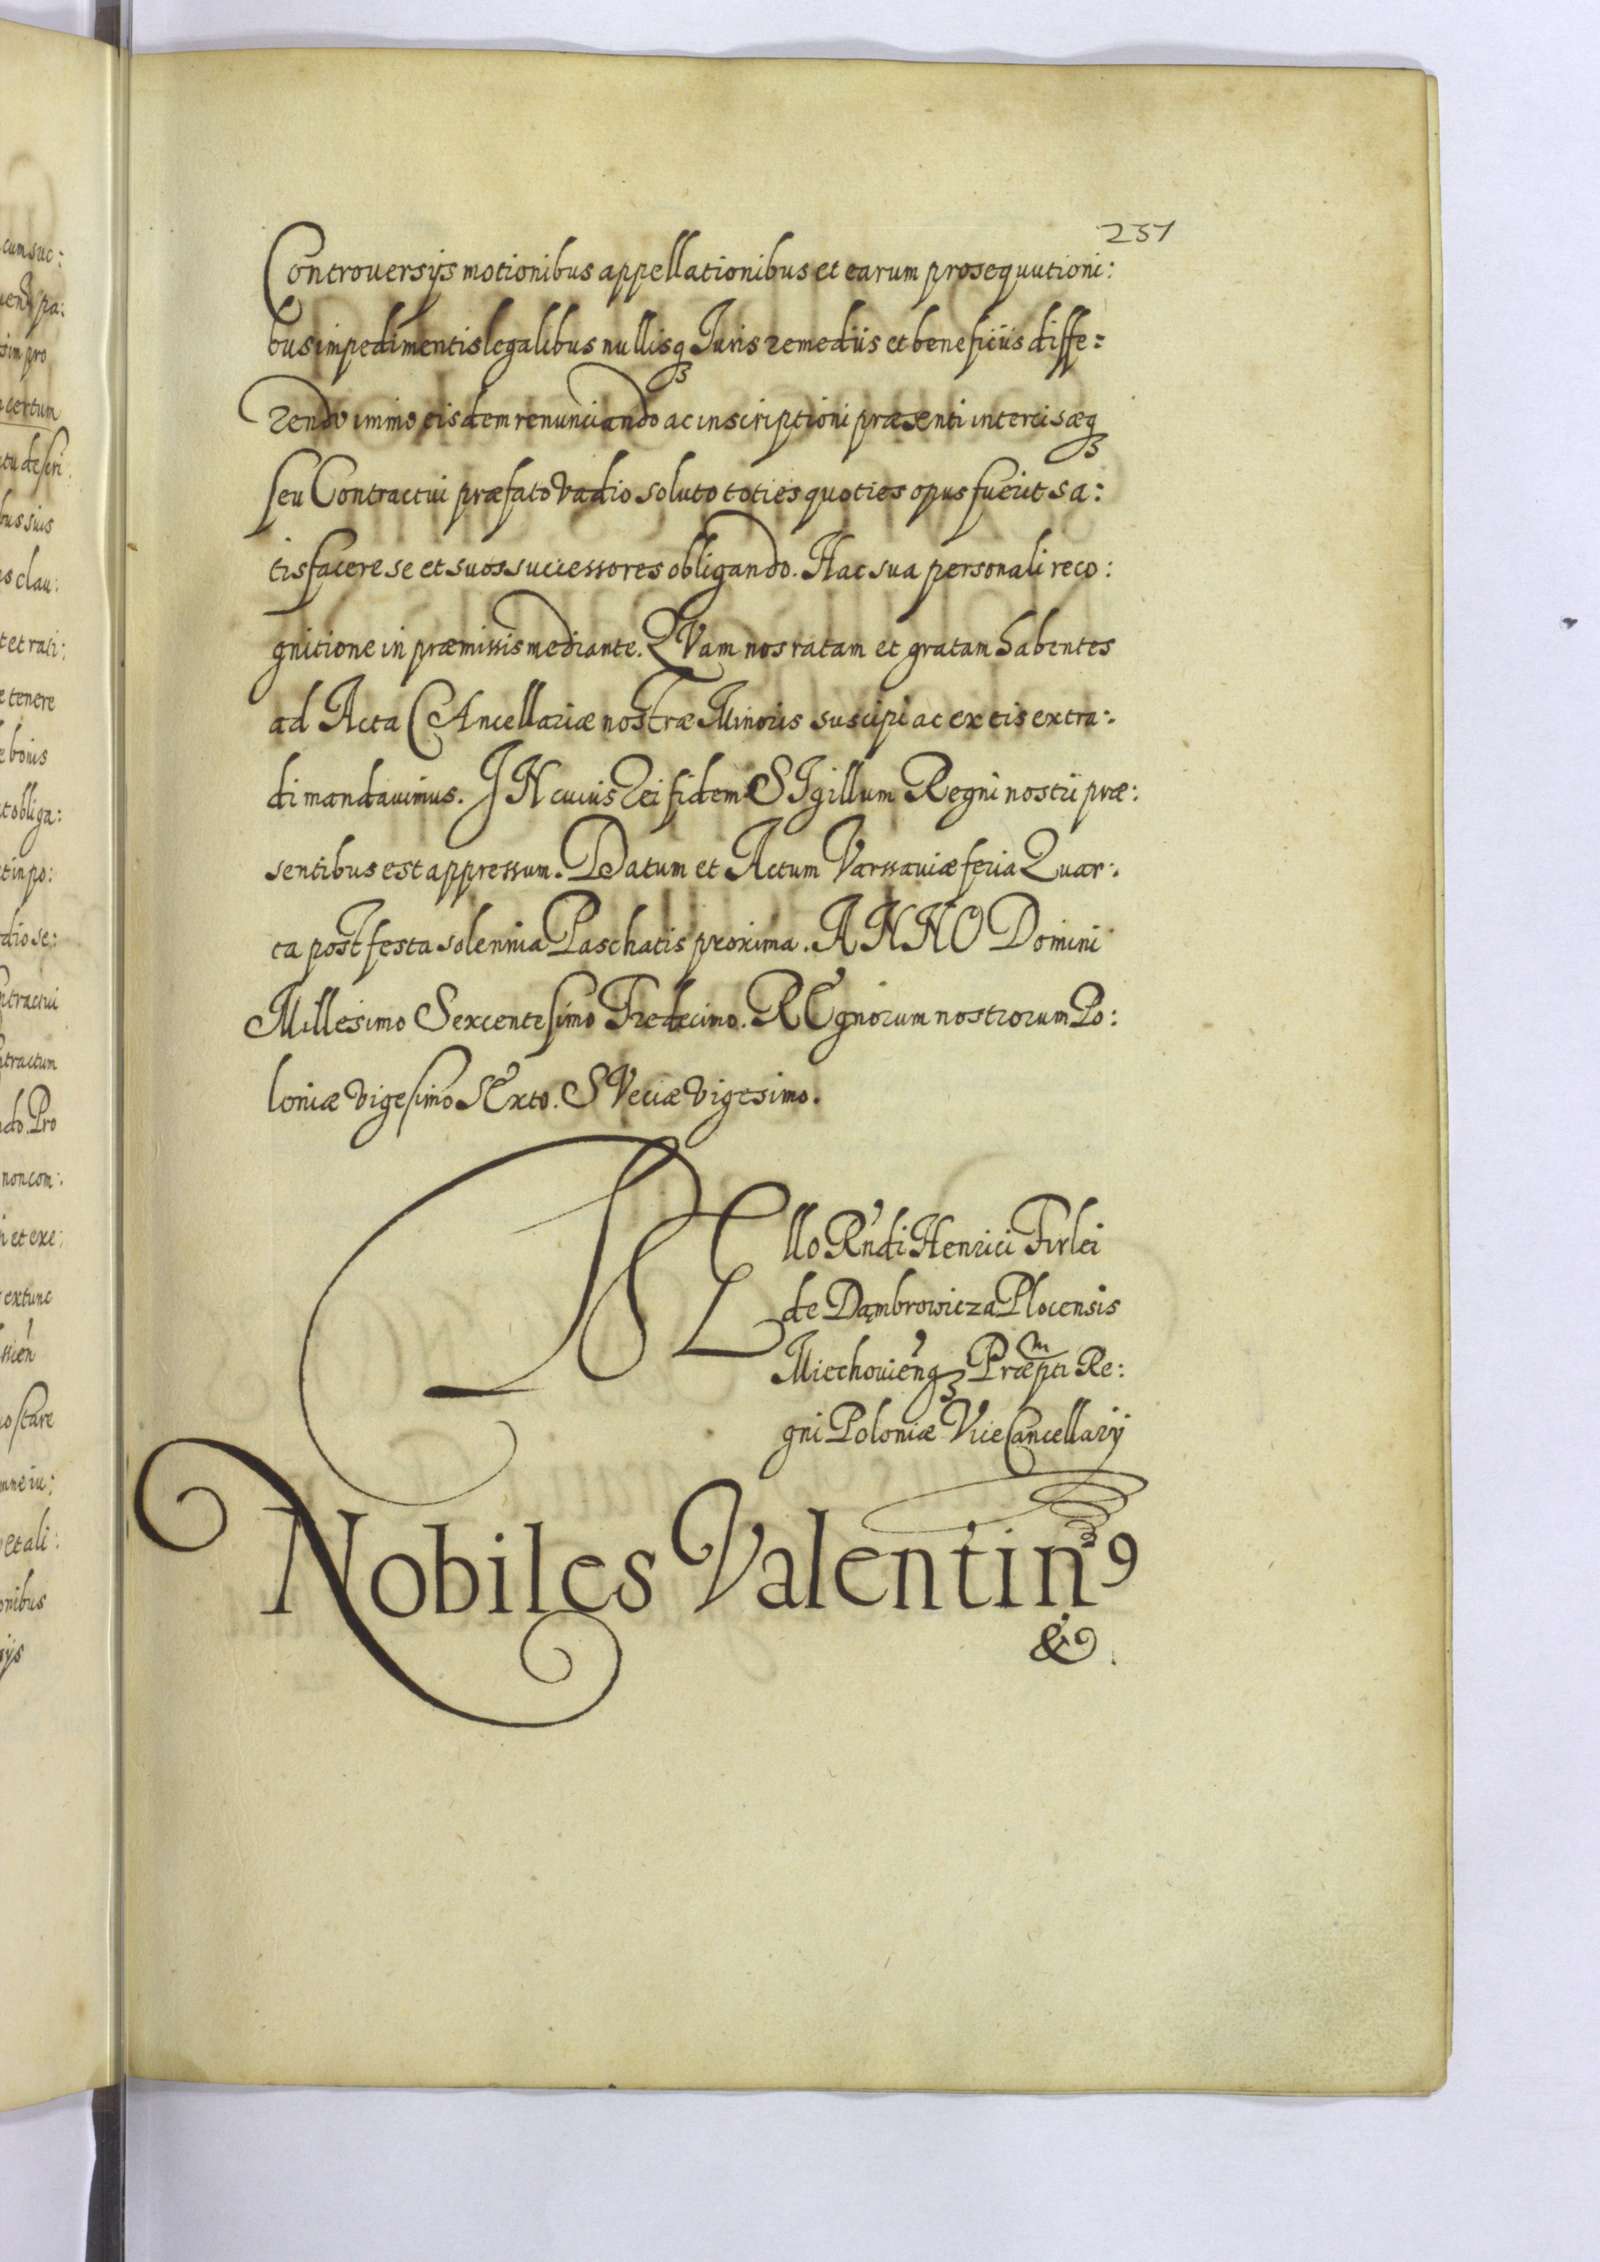 231
Controuersÿs motionibus appellationibus et earum prosequutioni:
bus impedimentis legalibus nullisqꝫ Iuris remediis et beneficiis diffe:
rendo immo eisdem renunciando ac inscriptioni præsenti intercisæqꝫ
seu Contractui præfato vadio soluto toties quoties opus fuerit sa:
tisfacere se et suos successores obligando. Hac sua personali reco:
gnitione in præmissis mediante. QVam nos ratam et gratam habentes
ad Acta CAncellariæ nostræ Minoris suscipi ac ex eis extra:
di mandauimus. IN cuius rei fidem SIgillum Regni nostri præ:
sentibus est appressum. Datum et Actum Varssauiæ feria Quar:
ta post festa solennia Paschatis proxima. ANNO Domini
Millesimo Sexcentesimo Tredecimo. REgnorum nostrorum Po:
loniæ vigesimo SExto. SVeciæ vigesimo.
llo Rndi Henrici Firlei
de Dąmbrowicza Plocensis
Miechouienqꝫ Præpti Re:
gni Poloniæ ViceCancellarÿ
Nobiles Valentin9
&
cum suc:
pa:
sim pro
certum
bus suis
clau:
et rati:
e tenere
bonis
t obliga:
t in po:
dio se:
ntractui
ntractum
do. Pro
non com:
i et exe:
extunc
stare
mne iu:
et ali:
onibus